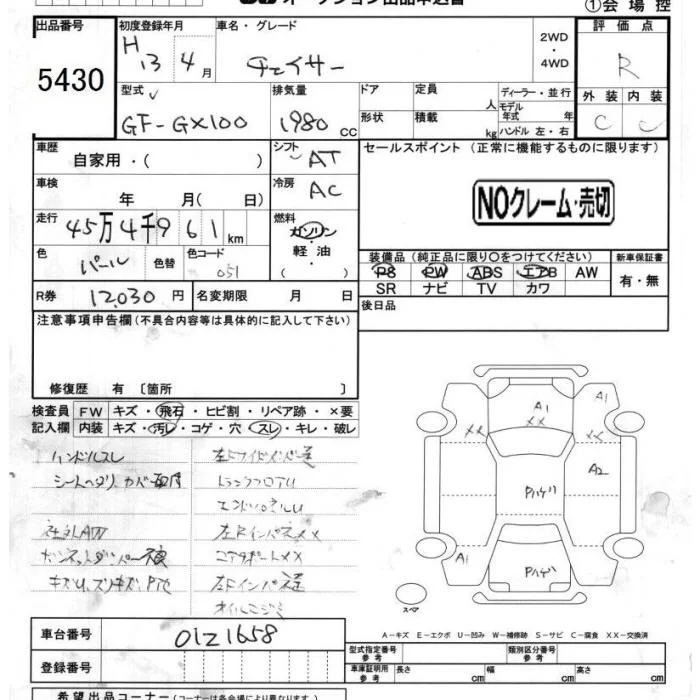 オークション出品申込書
①会場控
出品番号
5430
初度登録年月
H 13 年 4 月
車名・グレード
チェイサー
2WD
・
4WD
評価点
R
外装 内装
C C
型式
GF-GX100
排気量
1980 cc
ドア
定員
人
ディーラー・並行
モデル年式 年
形状
積載
kg
ハンドル 左・右
車歴
自家用・( )
シフト AT
セールスポイント (正常に機能するものに限ります)
NOクレーム・売切
車検
年 月(日)
冷房 AC
走行
45万4千961 km
燃料
ガソリン・
軽油・
( )
色
パール
色替
色コード
051
装備品 (純正品に限り○をつけてください)
新車保証書
PS PW ABS エアB AW
有・無
SR ナビ TV カワ
R券 12,030 円
名変期限 月 日
後日品
注意事項申告欄 (不具合内容等は具体的に記入して下さい)
修復歴 有 〔箇所 〕
検査員 FW キズ・飛石・ヒビ割・リペア跡・×要
記入欄 内装 キズ・汚レ・コゲ・穴・スレ・キレ・破レ
ハンドルスレ
シートヘタリ、カバー取付
社外AW
キズU、スリキズ、Pナモ
トランクフロアU
左Rインパネ××
コアサポート××
オイルニジミ
A1
A1
××
××
A2
Pハゲ
Pハゲ
A1
スペア
A-キズ E-エクボ U-凹み W-補修跡 S-サビ C-腐食 XX-交換済
車台番号
0121658
登録番号
型式指定番号 参考
類別区分番号 参考
車庫証明用 参考
長さ cm
幅 cm
高さ cm
希望出品コーナー (コーナーは各会場により異なります)